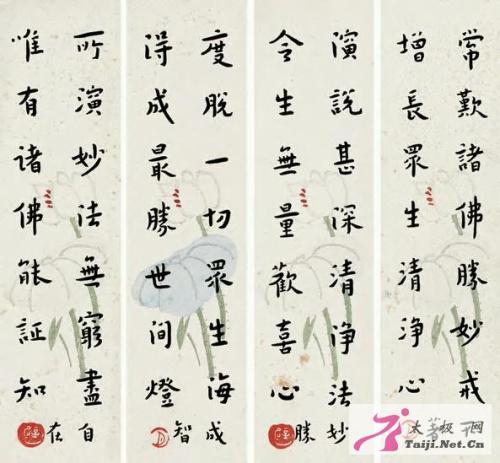 常歎諸佛勝妙戒
增長眾生清淨心
演說甚深清淨法
妙
令生無量歡喜心
勝
度脫一切眾生海
成
得成最勝世间燈
智
所演妙法無窮盡
自
唯有诸佛能証知
在
太极网
Taiji.Net.Cn